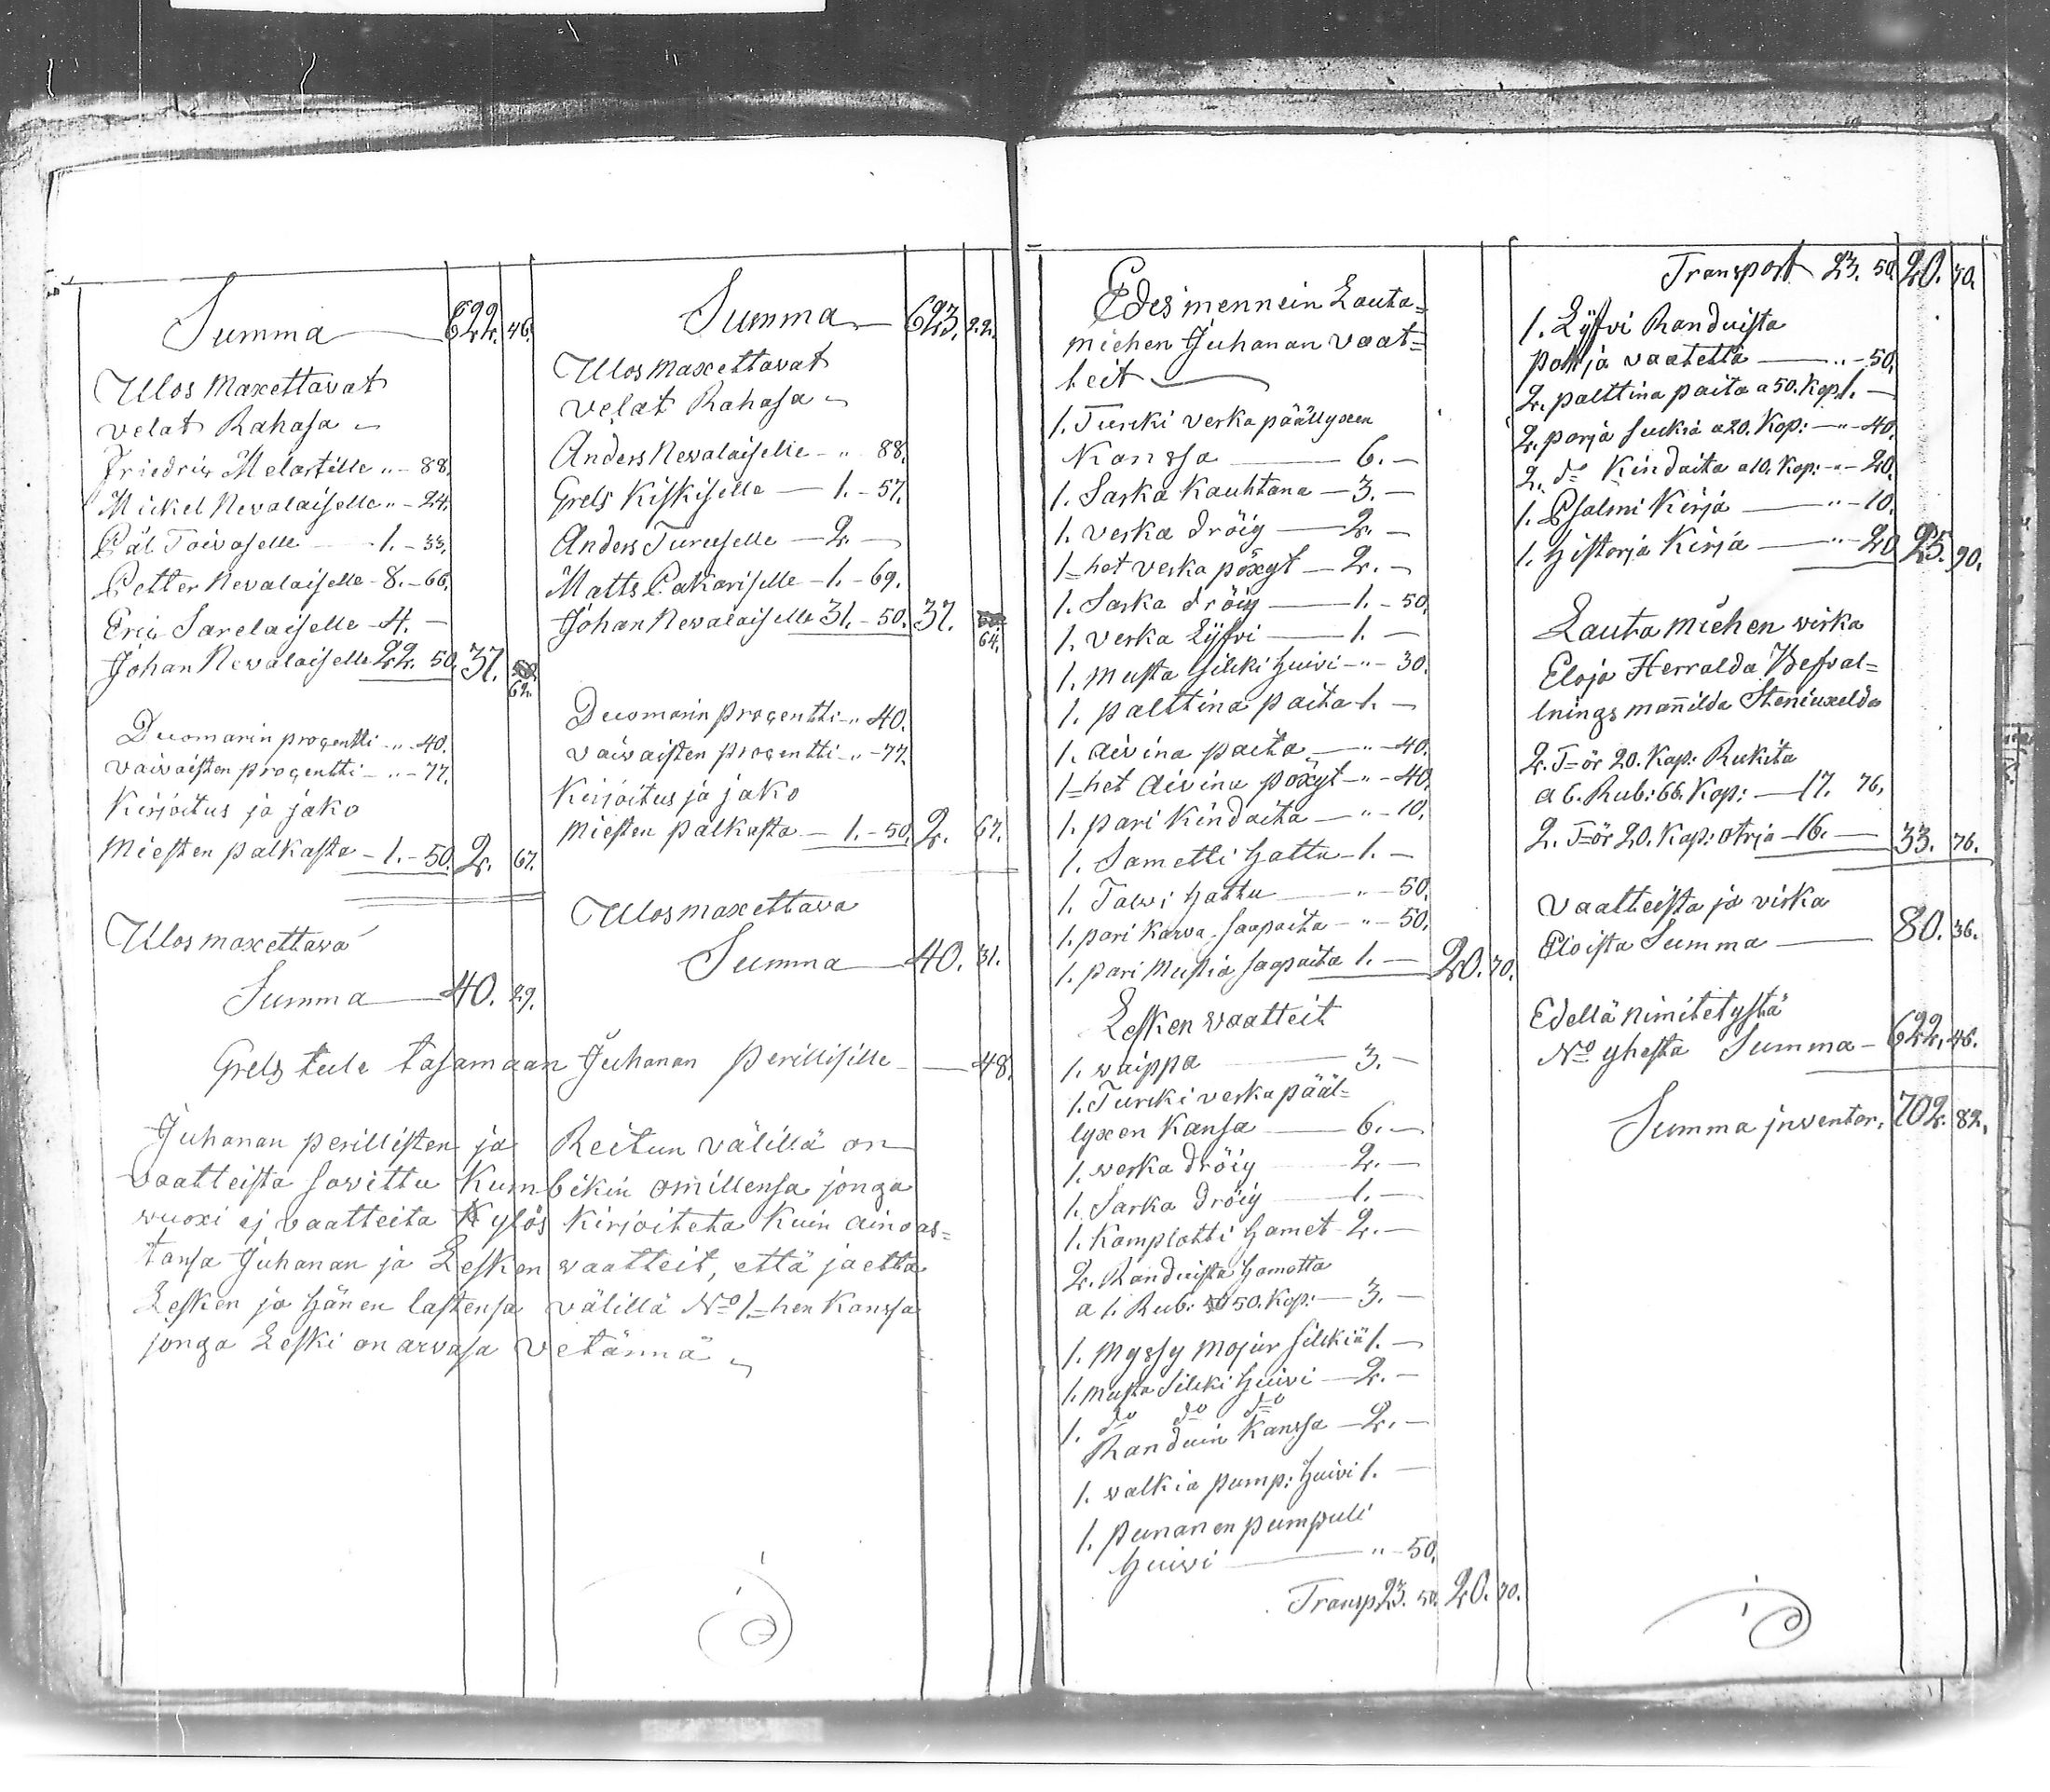 Summa — 622. 46.
Ulos maxettavat
velat Rahasa
Friedrix Melartille „ - 88.
Mickel Nevalaiselle „ - 24.
Pål Toivaselle — 1. - 33.
Petter Nevalaiselle - 8. - 66.
Eric Sarelaiselle - 4. —
Johan Nevalaiselle 22. 50. 37.
62.
Duomarin procentti - „ - 40.
vaivaisten procentti - „ - 77.
Kirjoitus ja jako
miesten palkasta - 1. - 50. 2. 67.
Ulos maxettava
Summa — 40. 29.
Summa — 623. 22.
Ulos maxettavat
velat Rahasa
Anders Nevalaiselle - „ 88.
Grels Kiskiselle — 1. - 57.
Anders Turuselle — 2. —
Matts Pakariselle - 1. - 69.
Johan Nevalaiselle 31. - 50. 37.
64.
Duomarin procentti - „ 40.
vaivaisten procentti - „ - 77.
Kirjoitus ja jako
miesten palkasta — 1. - 50. 2. 67.
Ulos maxettava
Summa — 40. 31.
Grels tule tasamaan Juhanan perillisille — 48.
Juhanan perillisten ja Reitun välillä on
vaatteista sovittu Kumbikin omillensa jonga
wuoxi ej vaatteita Kylös Kirjoiteta Kuin ainoas=
tansa Juhanan ja Lesken vaatteit, että jaetta
Lesken ja hänen lastensa välillä No 1=hen Kanssa
jonga Leski on arvasa vetännä
Edes mennein Lauta=
miehen Juhanan vaat=
teit
1. Turcki verka päällyxen
Kanssa — 6. —
1. Sarka Kauhtana — 3. —
1. verka dröig — 2. —
1=het verka pöxyt — 2. —
1. Sarka dröig — 1. - 50.
1. verka Lyfvi — 1. —
1. musta silcki huivi - „ - 30.
1. palttina paita 1. —
1. aivina paita — „ - 40.
1=het aivina pöxyt - „ - 40.
1. pari Kindaita — „ - 10.
1. Sametti hattu - 1. —
1. Talvi hattu — „ - 50.
1. pari Karva saapaita - „ - 50.
1. pari mustia saapaita 1. — 20. 70.
Lesken vaatteit
1. vaippa — 3. —
1. Turcki verka pääl=
lyxen Kansa — 6. —
1. verka dröig — 2. —
1. Sarka dröig — 1. —
1. Kamplotti hamet 2. —
2. Randuista hametta
a 1. Rub: 50. Kop: — 3. —
1. myssy mojur silckiä 1. —
1. musta silcki huivi — 2. —
1. do do do
Randuin Kanssa — 2. —
1. valkia pump: huivi 1. —
1. punanen pumpuli
huivi — „ - 50.
Transp. 23. 50. 20. 70.
Transport 23. 50. 20. 70.
1. Lyfvi Randuista
pohja vaatetta — „ - 50.
2. palttina paita a 50. Kop. 1. —
2. parja suckia a 20. Kop: — „ - 40.
2. do Kindaita a 10. Kop: - „ - 20.
1. Psalmi Kirja — „ - 10.
1. historja Kirja — „ - 20 25. 90.
Lauta miehen wirka
Eloja Herralda Befval=
lnings mannilda Steniuxelda
2. T=ör 20. Kap: Rukita
a 6. Rub: 66. Kop: — 17. 76.
2. T=ör 20. Kap: otrja - 16. — 33. 76.
Vaatteista ja virka
Eloista Summa — 80. 36.
Edellä nimitetystä
No yhestä Summa — 622. 46.
Summa jnventar. 702. 82.